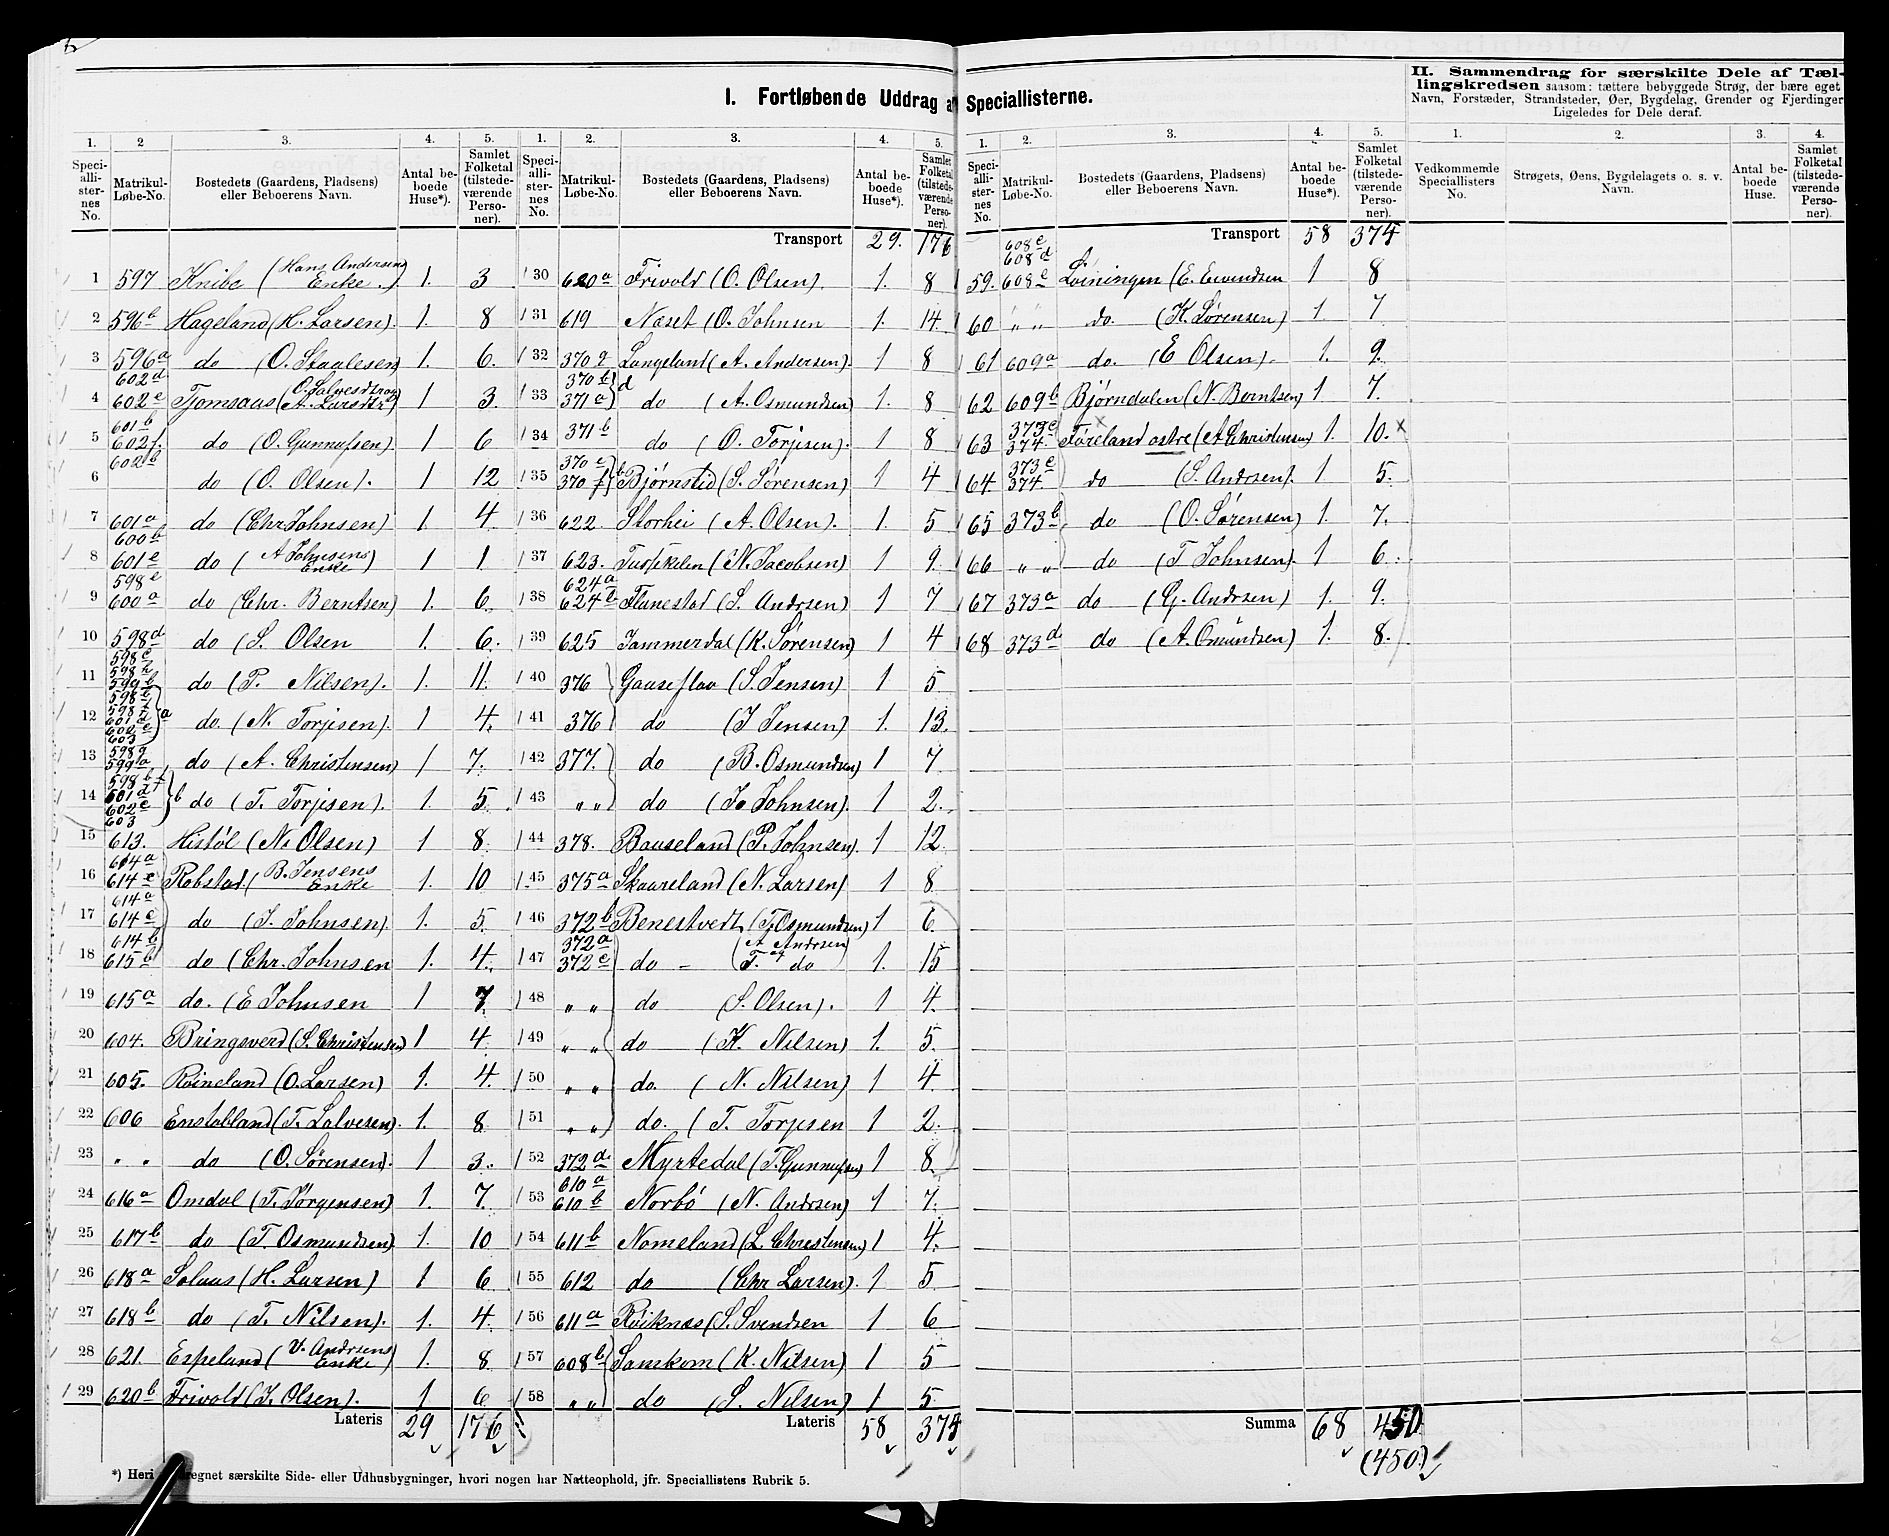 I. Fortløbende Uddrag af Speciallisterne.
II. Sammendrag for særskilte Dele af Tællingskredsen saasom: tættere bebyggede Strøg, der bære eget
Navn, Forstæder, Strandsteder, Øer, Bygdelag, Grender og Fjerdinger
Ligeledes for Dele deraf.
1. 2 3. 4. 5.
Speciallisternes No. Matrikul-Løbe-No. Bostedets (Gaardens, Pladsens) eller Beboerens Navn. Antal beboede Huse*). Samlet Folketal (tilstedeværende Personer).
1 597 Knibe (Hans Andersens Enke.) 1. 3
2 596b Hageland (H. Larsen). 1. 8
3 596a do (O. Staalesen) 1. 6.
4 602d 602e Tjomsaas (A. Larsdtr) 1 3.
5 601b 602f. do (O. Gunnufsen) 1 6
6 602b do (O. Olsen). 1 12
7 601a do (Chr Johnsen) 1. 4.
8 600b 601e do (A Johnsens Enke) 1 1
9 598e 600a do (Chr. Berntsen) 1. 6.
10 598d do (S. Olsen 1. 6.
11 do (P. Nilsen). 1. 11.
12 603 a do. (N. Torjesen). 1 4.
13 598g 599a do (A. Christensen) 1 7.
14 601d 602c 603 b do (T. Torjesen). 1. 5.
15 613. Histöl (N. Olsen) 1 8.
16 614a 614c Robstad (B. Jensens Enke 1. 10
17 614a 614c do (J. Johnsen). 1. 5.
18 614b 615b do (Chr. Johnsen 1. 4.
19 615a do. (E Johnsen 1 7.
20 604. Bringsverd (S. Christensen) 1 4.
21 605. Röineland (O. Larsen) 1. 4.
22 606 Enstabland (T. Salvesen). 1. 8
23 " " do (O. Sørensen). 1 3.
24 616a Omdal (T. Jørgensen) 1. 7.
25 617b do (T. Osmundsen) 1. 10
26 618a Solaas (H. Larsen) 1 6
27 618b do (T. Nilsen). 1. 4.
28 621. Espeland (V. Andrsens Enke) 1. 8
29 620b Frivold (J. Olsen). 1 6
Lateris 29 176
1. 2. 3. 4. 5.
Speciallisternes No. Matrikul-Løbe-No. Bostedets (Gaardens, Pladsens) eller Beboerens Navn. Antal beboede Huse*). Samlet Folketal (tilstedeværende Personer).
Transport 29. 176
30 620a Frivold (O. Olsen). 1. 8
31 619 Næset (O. Johnsen 1. 14.
32 370g Langeland (A. Andersen). 1 8
33 370b 371a d do (A. Osmundsen) 1. 8
34 371b do (O. Torjesen). 1 8
35 370e 370f b Bjørnstid (S. Sørensen) 1 4
36 622. Storhei (A. Olsen). 1. 5
37 623. (N. Jacobsen) 1 9.
38 624a 624b Flanestad (S. Andrsen) 1 7
39 625 Jammerdal (K. Sørensen) 1 4
40 376 Gauseflaa (S. Jensen) 1 5
41 376 do (J Jensen) 1. 13.
42 377. do (B. Osmundsen) 1 7
43 " " do (Jo Johnsen). 1 2.
44 378. Bauseland (P. Johnsen). 1 12
45 375a Skaareland (N. Larsen) 1 8
46 372b Benestvedt (T. Osmundsen) 1 6
47 372a 372c do (A Andrsen) T. do 1. 15
48 " " do (S. Olsen). 1 4.
49 " " do (K. Nilsen) 1. 5.
50 " " do. (N. Nilsen) 1 4
51 " " do. (T. Torjesen 1 2.
52 372d Myrtedal (T. Gunnufsen) 1 8.
53 610a 610b Norbö (N. Andrsen) 1 7.
54 611b Nomeland (L. Christensen) 1 4.
55 612 do (Chr Larsen). 1 5
56 611a Röiknæs (S. Svendsen 1 6
57 608b Samkom (K. Nilsen) 1 5
58 " " do (S. Nilsen) 1 5
Lateris 58 374
1. 2. 3. 4. 5.
Speciallisternes No. Matrikul-Løbe-No. Bostedets (Gaardens, Pladsens) eller Beboerens Navn. Antal beboede Huse*). Samlet Folketal (tilstedeværende Personer).
Transport 58 374
59. 608c 608d 608e Löiningen (E. Eivendsen 1 8
60 " " do. (K. Sørensen) 1 7
61 609a do. (E Olsen). 1. 9.
62 609b Bjørndalen (N. Berntsen) 1 7.
63 373c 374. Føreland östre (A Christensen) 1. 10. x
64 373c 374. do (S. Andrsen). 1 5.
65 373b do (O. Sørensen) 1. 7.
66 " " do (T Johnsen). 1 6.
67 373a do (G. Andrsen) 1. 9.
68 373d do (A. Osmundsen) 1. 8.
Summa 68 450
(450)
1. 2. 3. 4.
Vedkommende Speciallisters No. Strøgets, Øens, Bygdelagets o. s. v. Navn. Antal beboede Huse. Samlet Folketal (tilstedeværende Personer).
*) Heri regnet særskilte Side- eller Udhusbygninger, hvori nogen har Natteophold, jfr. Speciallistens Rubrik 5.